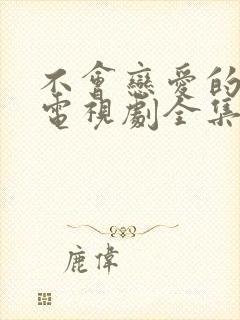 不會戀愛的
電視劇全集
鹿偉